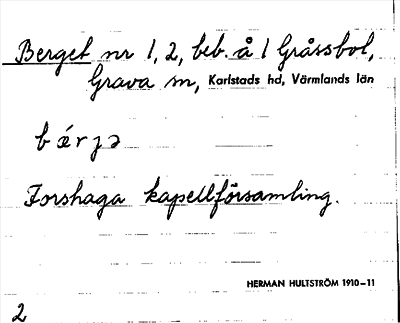 Berget nr 1, 2, beb. å 1 Gråssbol,
Grava sn, Karlstads hd, Värmlands län
bǽrjə
Forshaga kapellförsamling.
HERMAN HULTSTRÖM 1910–11
2